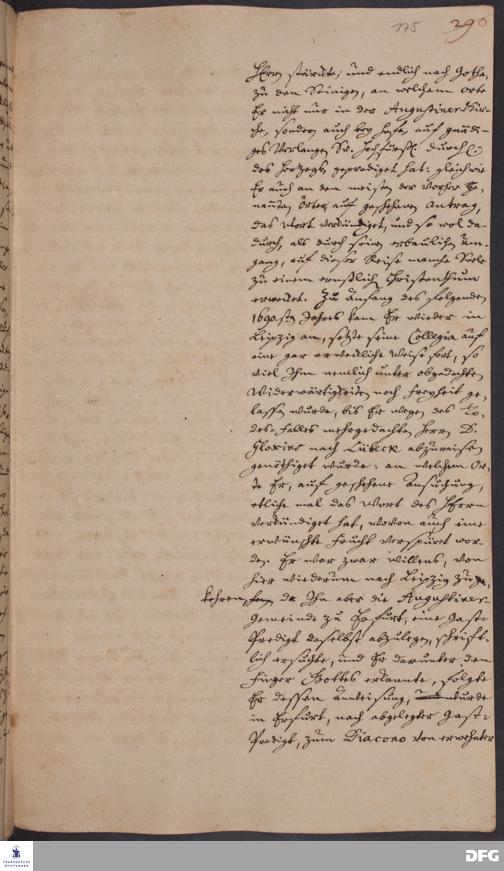 175 290
HErrn stärckte; und endlich nach Gotha,
zu den Seinigen, an welchem Orte
Er nicht nur in der Augustiner-Kir-
che, sondern auch bey Hofe, auf gnädi-
ges Verlangen Sr. Hochfürstl. Durchl.
des Hertzogs, geprediget hat: gleichwie
Er auch an den meisten der vorher ge-
nannten Örter, auf geschehenen Antrag,
das Wort verkündiget, und so wol da-
durch, als durch seinen erbaulichen Um-
gang, auf dieser Reise manche Seele
zu einem ernstlichen Christenthum
erwecket. Zu Anfang des folgenden
1690.sten Jahres kam Er wieder in
Leipzig an, setzte seine Collegia auf
eine gar erweckliche Weise fort, so
viel Ihm nemlich unter obgedachten
Widerwärtigkeiten noch Freyheit ge-
lassen wurde, bis Er wegen des To-
des-Falles mehrgedachten Herrn D.
Gloxins nach Lübeck abzureisen
genöthiget wurde: an welchem Or-
te Er, auf geschehene Ansuchung,
etliche mal das Wort des HErrn
verkündiget hat, wovon auch eine
erwünschte Frucht verspüret wor-
den. Er war zwar willens, von
hier wiederum nach Leipzig zu
kehren, da Ihn aber die Augustiner-
Gemeinde zu Erfurt, eine Gast-
Predigt daselbst abzulegen, schrift-
lich ersuchte, und Er darunter den
Finger Gottes erkannte, folgte
Er dessen Anweisung, wurde
in Erfurt, nach abgelegter Gast-
Predigt, zum Diacono von erwehnter
FRANCKESCHE STIFTUNGEN
DFG